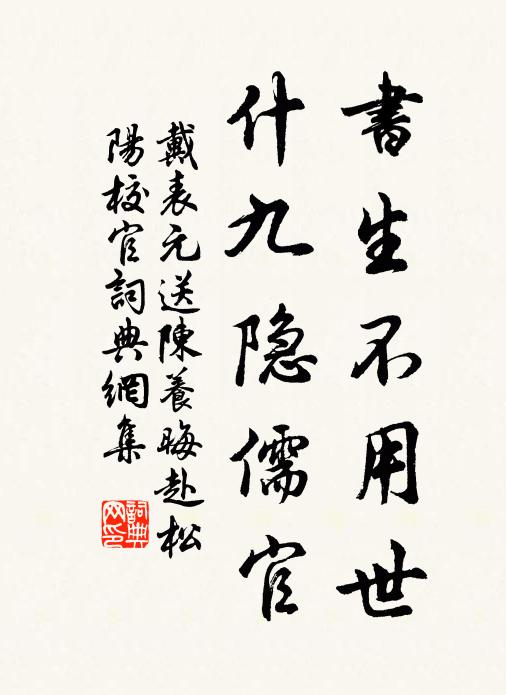 書生不用世
什九隐儒官
戴表元送陳養晦赴松
陽校官詞典網集
詞典网印